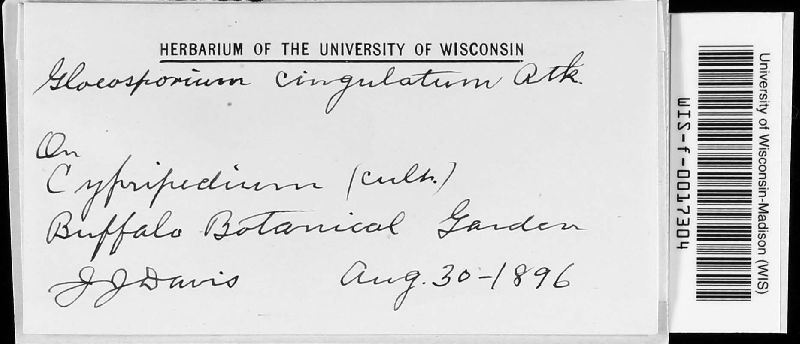 HERBARIUM OF THE UNIVERSITY OF WISCONSIN
Gloeosporium cingulatum Atk.
On
Cypripedium (cult.)
Buffalo Botanical Garden
J J Davis Aug. 30-1896
University of Wisconsin-Madison (WIS)
WIS-f-0017304